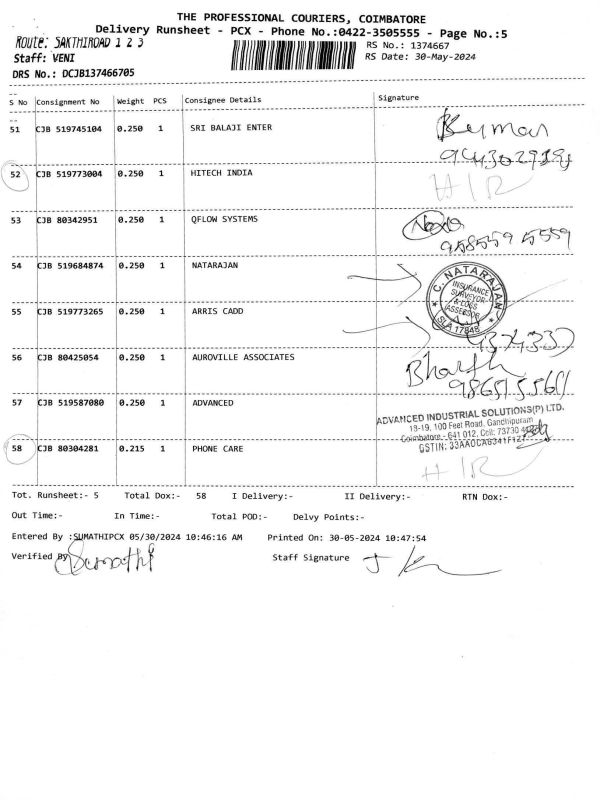 THE PROFESSIONAL COURIERS, COIMBATORE
Delivery Runsheet - PCX - Phone No.:0422-3505555 - Page No.:5
Route: SAKTHIROAD 1 2 3
RS No.: 1374667
Staff: VENI
RS Date: 30-May-2024
DRS No.: DCJB137466705
S No Consignment No Weight PCS Consignee Details Signature
51 CJB 519745104 0.250 1 SRI BALAJI ENTER Kumar
52 CJB 519773004 0.250 1 HITECH INDIA
53 CJB 80342951 0.250 1 QFLOW SYSTEMS
54 CJB 519684874 0.250 1 NATARAJAN
C. NATARAJAN
INSURANCE
SURVEYOR
& LOSS
ASSESSOR
SLA 17848
55 CJB 519773265 0.250 1 ARRIS CADD
56 CJB 80425054 0.250 1 AUROVILLE ASSOCIATES Bharth
57 CJB 519587080 0.250 1 ADVANCED
ADVANCED INDUSTRIAL SOLUTIONS(P) LTD.
18-19, 100 Feet Road, Gandhipuram
Coimbatore - 641 012. Cell: 73730
GSTIN:
58 CJB 80304281 0.215 1 PHONE CARE
Tot. Runsheet:- 5 Total Dox:- 58 I Delivery:- II Delivery:- RTN Dox:-
Out Time:- In Time:- Total POD:- Delvy Points:-
Entered By :SUMATHIPCX 05/30/2024 10:46:16 AM Printed On: 30-05-2024 10:47:54
Verified By Sumathi Staff Signature